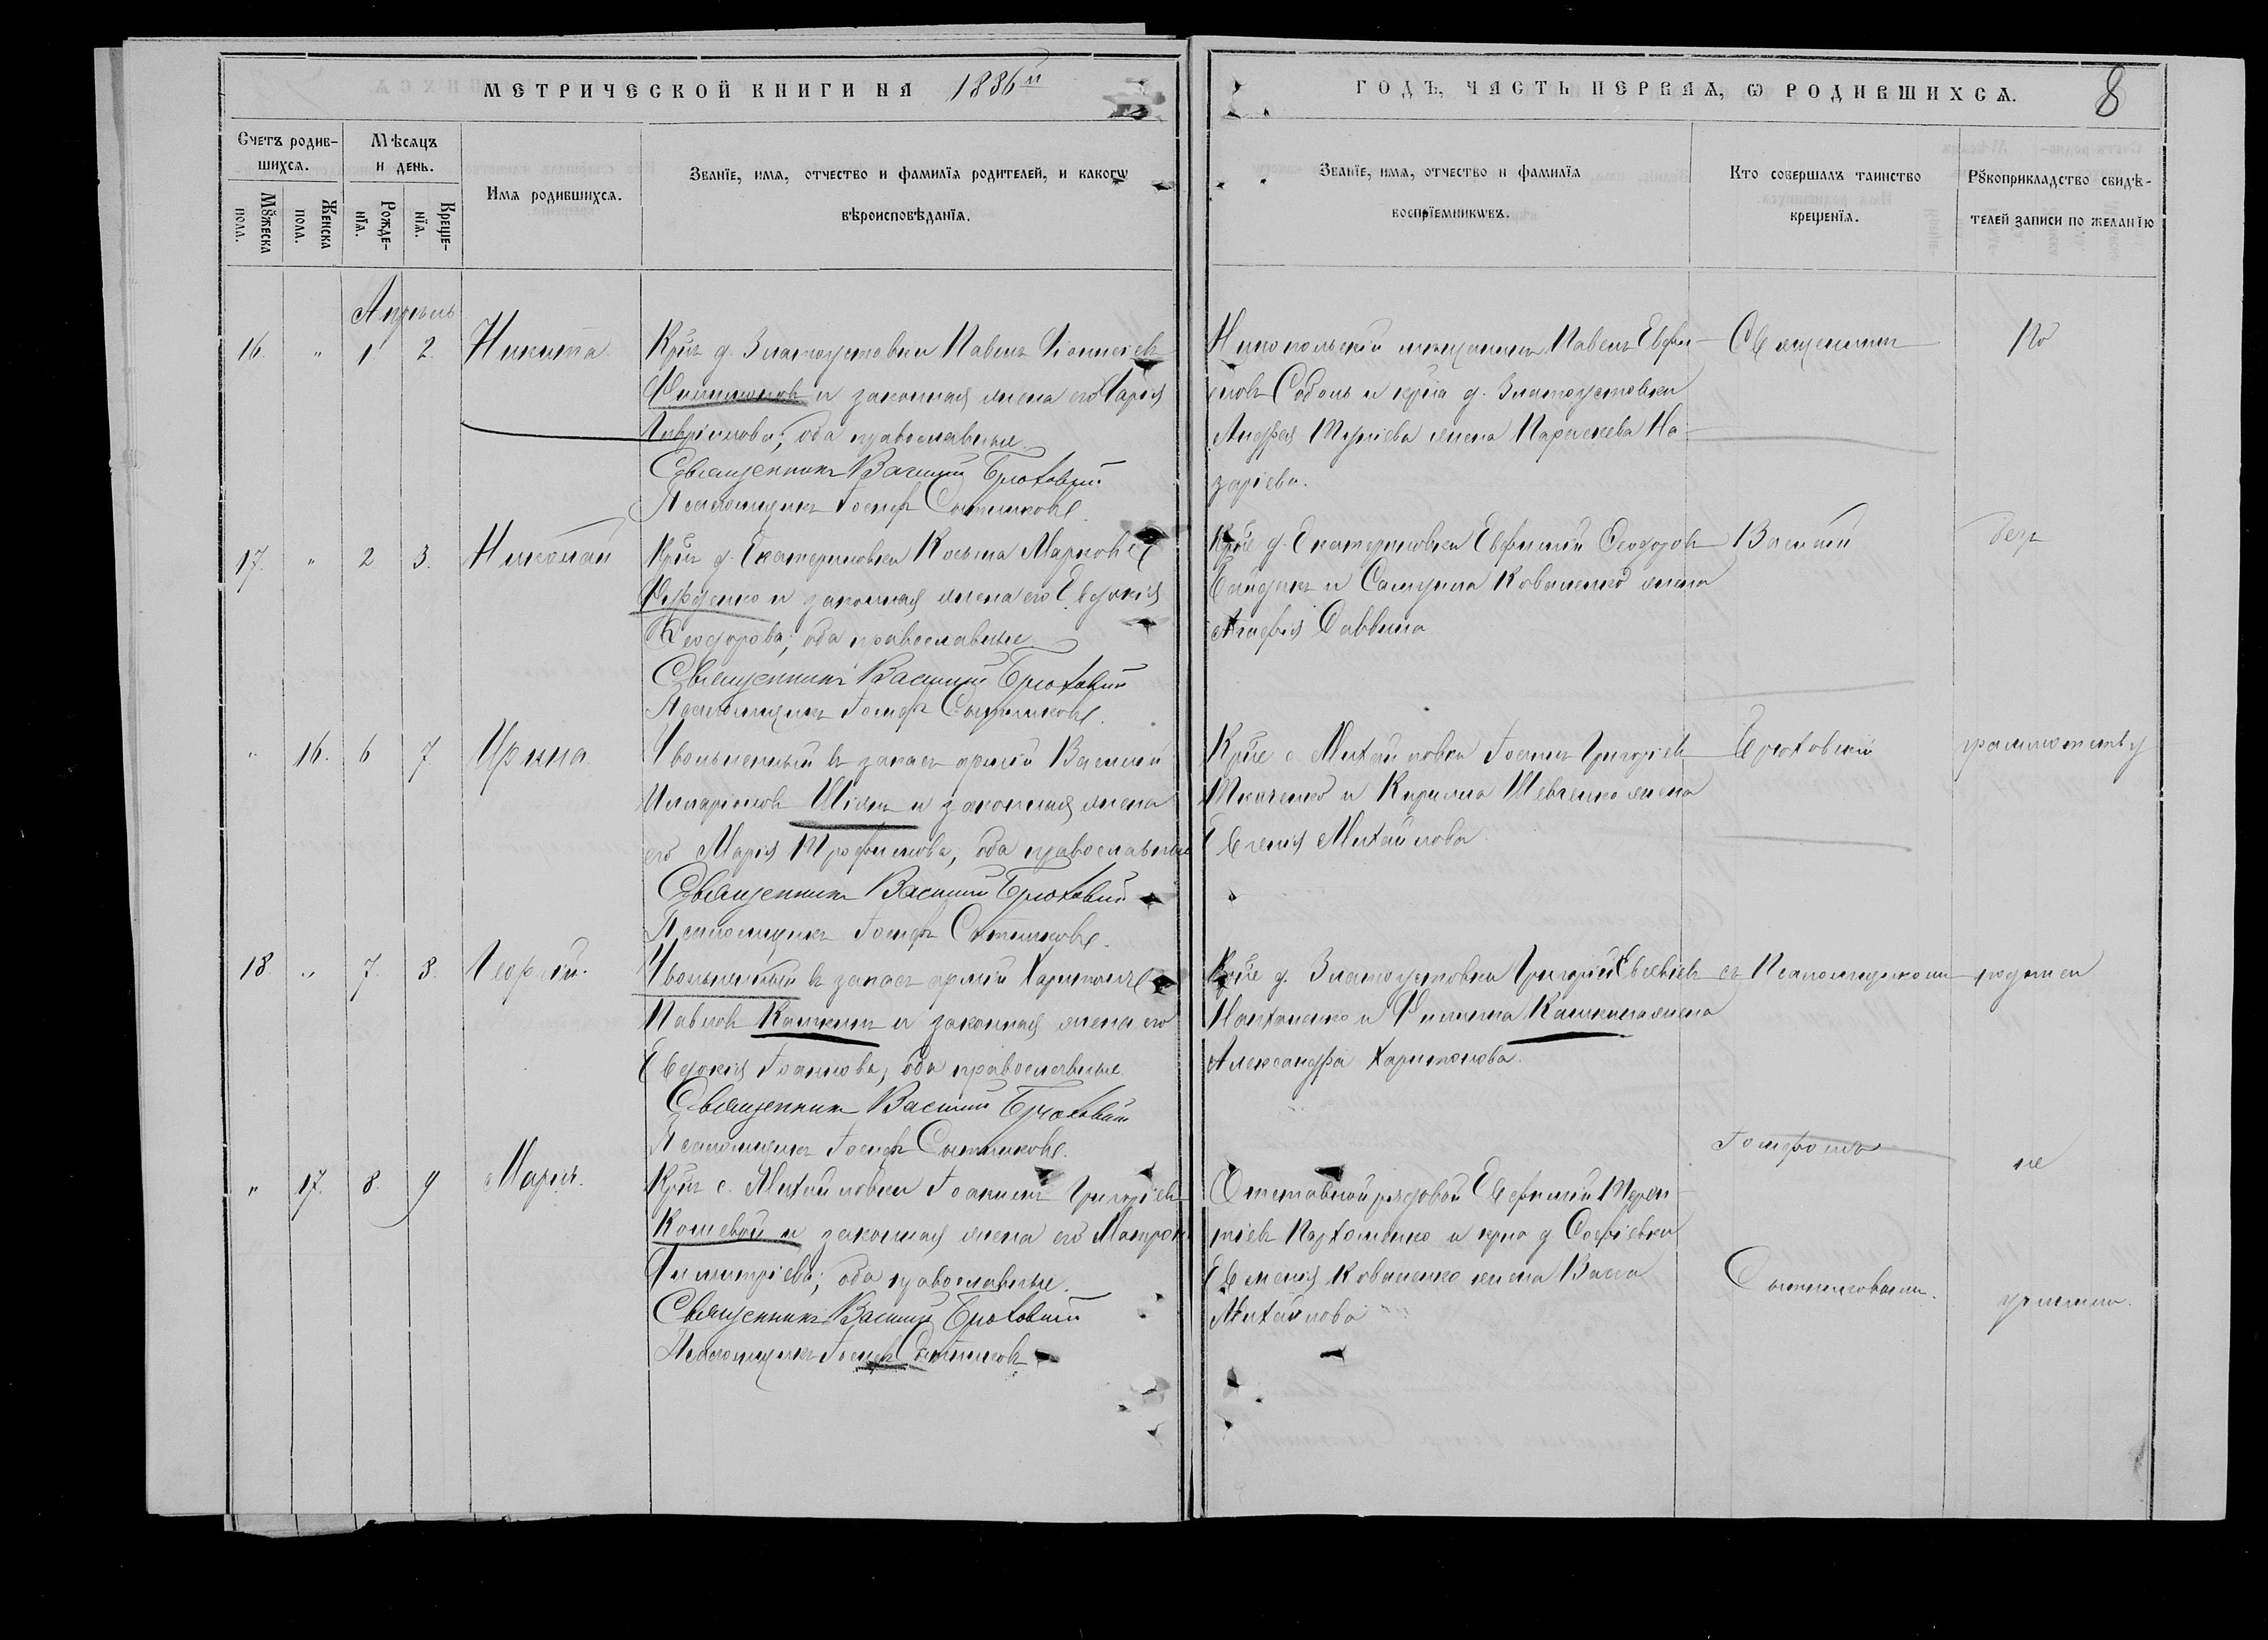 МЕТРИЧЕСКОЙ КНИГИ НА 1886й
ГОДЪ, ЧАСТЬ ПЕРВАЯ, Ѡ РОДИВШИХСѦ.
8
Счетъ родив-
шихсѧ.
Мѣсѧцъ
и день.
Имѧ родившихсѧ.
Званїе, имѧ, отчество и фамилїѧ родителей, и какогѡ
вѣроисповѣданїѧ.
Мꙋжеска
пола.
Женска
пола.
Рожде-
нїѧ.
Креще-
нїѧ.
Званїе, имѧ, отчество и фамилїѧ
воспрїемникѡвъ.
Кто совершалъ таинство
крещенїѧ.
Рꙋкоприкладство свидѣ-
телей записи по желанїю
Апрель
16. " 1 2. Никита.
Крнъ д. Златоустовки Павелъ Дионисіевъ
и законная жена его Дарія
ова; оба православные.
Священникъ Василій Брюховскій
Псаломщикъ Іосифъ Сытниковъ
Никопольскій мещанинъ Павелъ Евфи-
мовъ Соболь и крна д. Златоустовки
Андрея жена Параскева На-
заріева.
Священникъ
По
17. " 2 3. Николай
Крнъ д. Екатериновки Косьма Марковъ
и законная жена его Евдокія
Ѳеодорова; оба православные
Священникъ Василій Брюховскій
Псаломщикъ Іосифъ Сытниковъ.
Крне д. Екатериновки Евфимій Ѳеодоровъ
и Самуила Коваленко жена
Агафія Саввина
Василій
без
" 16. 6 7 Ирина.
Уволенный въ запасъ арміи Василій
Иларіоновъ Шіянъ и законная жена
его Марія Трофимова; оба православные
Священникъ Василій Брюховскій
Псаломщикъ Іосифъ Сытниковъ.
Крне с. Михайловки Іоаннъ Григоріевъ
Ткаченко и Кирилла Шевченко жена
Евгенія Михайлова
Брюховскій
грамотству
18. " 7. 8. Георгій.
Уволенный въ запасъ арміи Харитонъ
Павловъ Калинкинъ и законная жена его
Евдокія Іоаннова; оба православные.
Священникъ Василій Брюховскій
Псаломщикъ Іосифъ Сытниковъ.
Крне д. Златоустовки Григорій Евсевіевъ
и Филиппа Калинкина жена
Александра Харитонова.
съ Псаломщикомъ
родители
Іосифомъ
не
" 17. 8 9 Марія.
Крнъ с. Михайловки Іоакимъ Григоріевъ
Кошевой и законная жена его Матрона
Димитріева; оба православные.
Священникъ Василій Брюховскій
Псаломщикъ Іосифъ Сытниковъ
Отставной рядовой Евфимій Терен-
тіевъ Пархоменко и крна д. Софіевки
Евменія Коваленко жена Васса
Михайлова
Сытниковымъ.